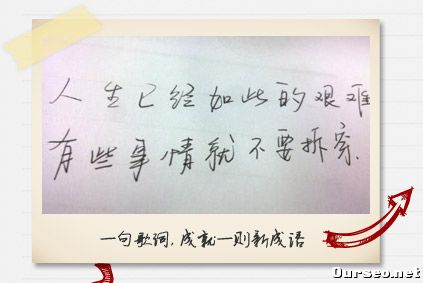 人生已经如此的艰难
有些事情就不要拆穿.
一句歌词,成就一则新成语
Ourseo.net